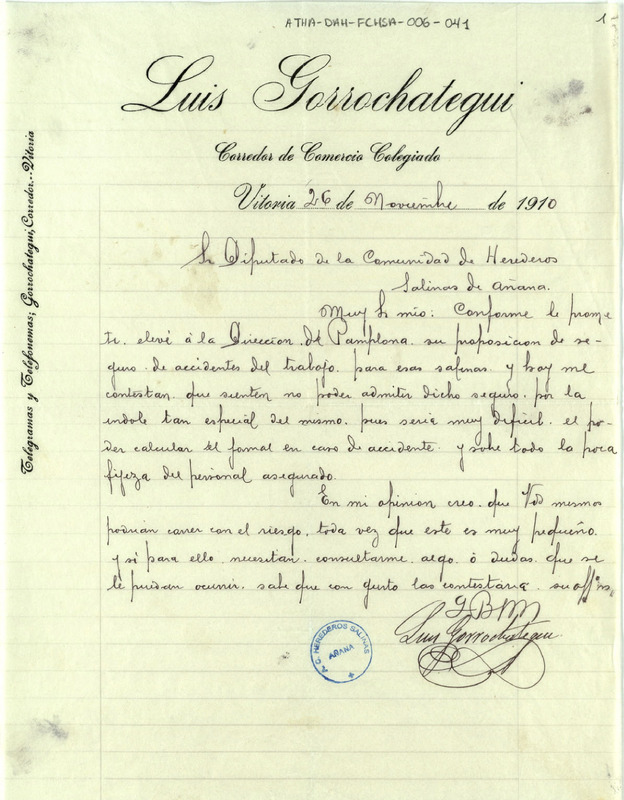 ATHA-DAH-FCHSA-006-041
1
Luis Gorrochategui
Corredor de Comercio Colegiado
Vitoria 26 de Noviembre de 1910
Telegramas y Telefonemas; Gorrochategui, Corredor.--Vitoria
Sr Diputado de la Comunidad de Herederos
Salinas de Añana.
Muy S. mio: Conforme le prome-
ti, elevé á la Direccion de Pamplona su proposicion de se-
guro de accidentes del trabajo para esas salinas y hoy me
contestan que sienten no poder admitir dicho seguro por la
indole tan especial del mismo, pues seria muy dificil el po-
der calcular el jornal en caso de accidente y sobre todo la poca
fijeza del personal asegurado.
En mi opinion creo que Vds mismos
podrian correr con el riesgo, toda vez que este es muy pequeño
y si para ello necesitan consultarme algo ó dudas que se
le puedan ocurrir, sabe que con gusto las contestaria su
Q B M
Luis Gorrochategui
A. C. HEREDEROS SALINAS
AÑANA